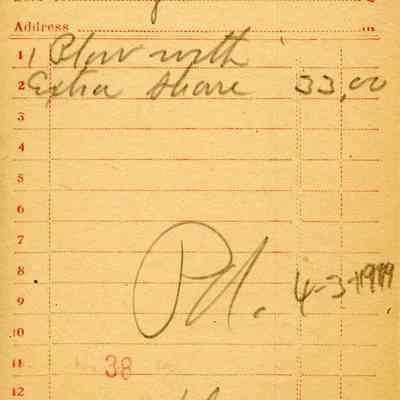 Address
1 1 Plow with
2 Extra share 33.00
3
4
5
6
7
8 Pd. 4-3-1919
9
10
11 38
12